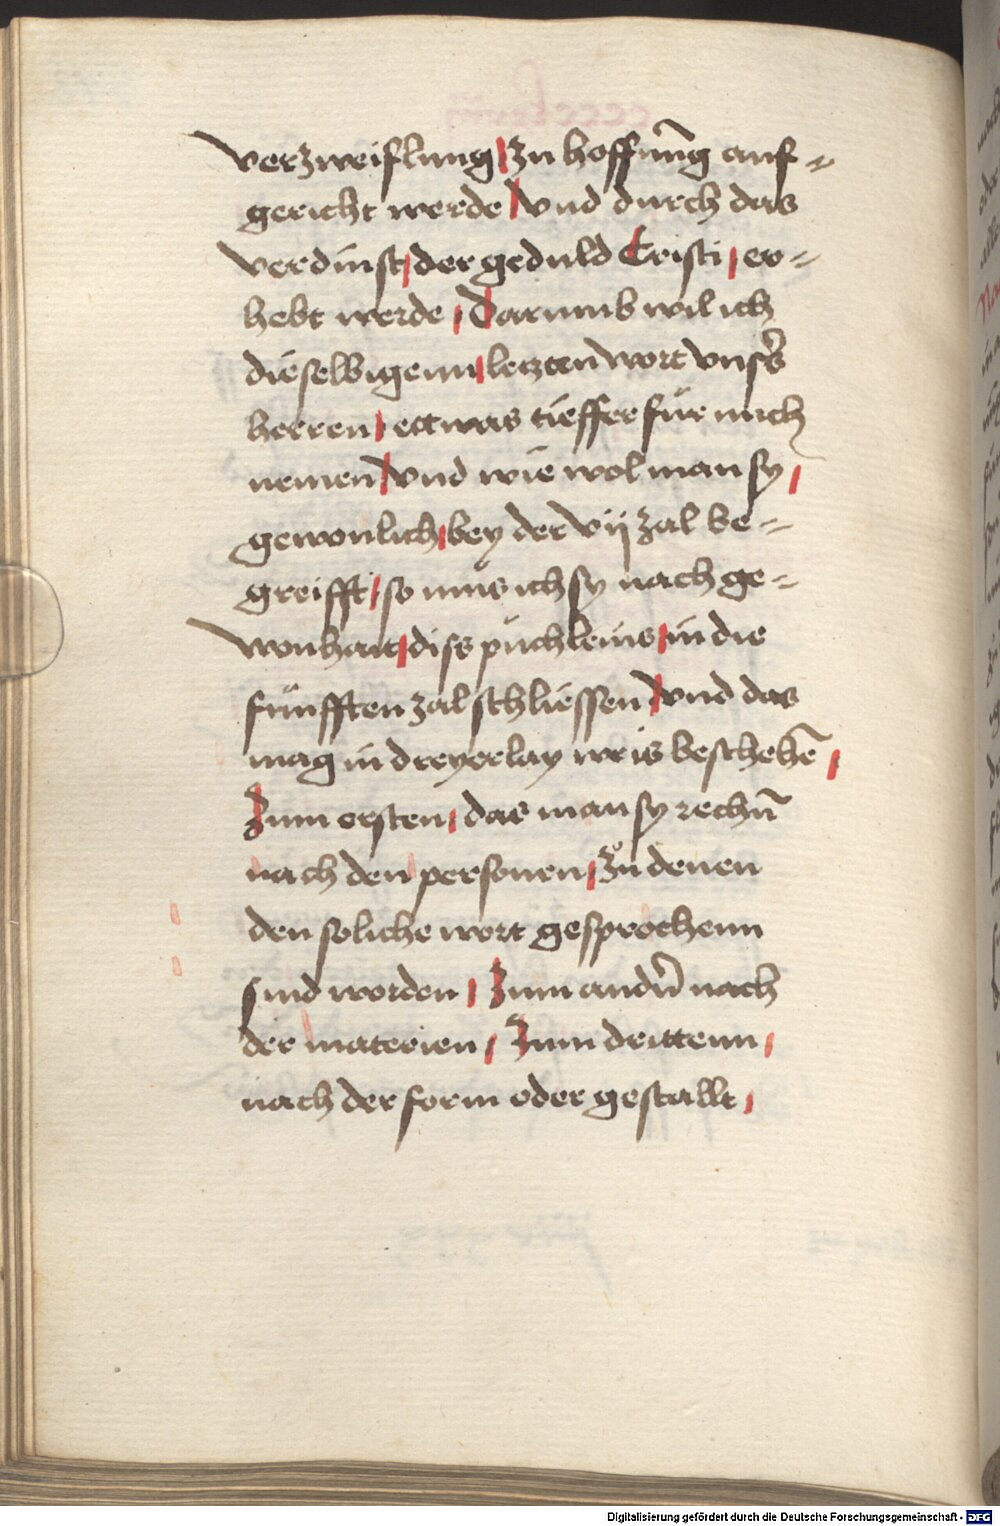 verzweiflung / zu hoffnūg auf=
gericht werde / vnd durch das
verdinst / der geduld Cristi / er=
hebt werde / Darumb wil ich
dieselbigenn / letzten wort vnsers
herren / ettwas tieffer für mich
nemen / vnd wie wol man sy /
gewonlich / bey der vij zal be=
greifft / so muͦs ich sy nach ge=
wonhait / diss puͤchleins / in die
fuͤnfften zal schliessen / vnd das
mag in dreyerlay weis beschehē /
Zum ersten / das man sy rechn̄
nach den personen / Zuͦ denen
den soliche wort gesprochenn
sind worden / Zum andn̄ nach
der materien / Zum drittenn /
nach der form oder gestallt /
Digitalisierung gefördert durch die Deutsche Forschungsgemeinschaft - DFG